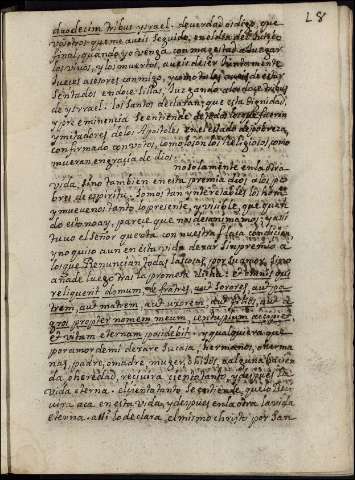 L8
duodecim tribus ysrael. de verdad os digo, que
vosotros que me aueis seguido, en el dia del Juizio
final, quando yo venga con magestad a Juzgar
los viuos, y los muertos, aueis de ser Juntamente
Jueces asesores conmigo, y como tales aueis de estar
sentados en doce sillas, Juzgando a los doce tribus
de ysrrael: los santos declaran, que esta dignidad,
y preeminencia se entiende de todos los que fueren
ymitadores de los Apostoles en el estado de pobreza,
confirmado con votos, como lo son los Religiosos, como
mueran en grasia de dios.
no solamente en la otra
vida, sino tambien en esta premia dios a los po-
bres de espiritu. Somos tan ynteresables los
y mueue nos tanto lo presente, y visible, que quan
do esto no ay, parece que nos desanimamos; y assi
tuuo el señor quenta con nuestra flaca condicion
y no quiso aun en esta vida dexar sin premio a
los que Renuncian todas las cosas, por su amor, sino
añade luego tras la promesa dicha: et omnis qui
reliquerit domum, vel fratres, aut sorores, aut pa-
trem, aut matrem, aut uxorem, aut filios, aut a-
gros propter nomem meum, centuplum accipiet
et vitam eternam posidebit. y qualquiera que
por amor de mi dexare su casa, hermanos, o herma
nas, padre, o madre, muger, o hijos, o alguna hacien
da, o heredad, reciuira ciento tanto, y despues la
vida eterna. el ciento tanto se entiende, que lo Reci-
uira aca en esta vida, y despues en la otra la vida
eterna. assi lo declara el mismo christo por San